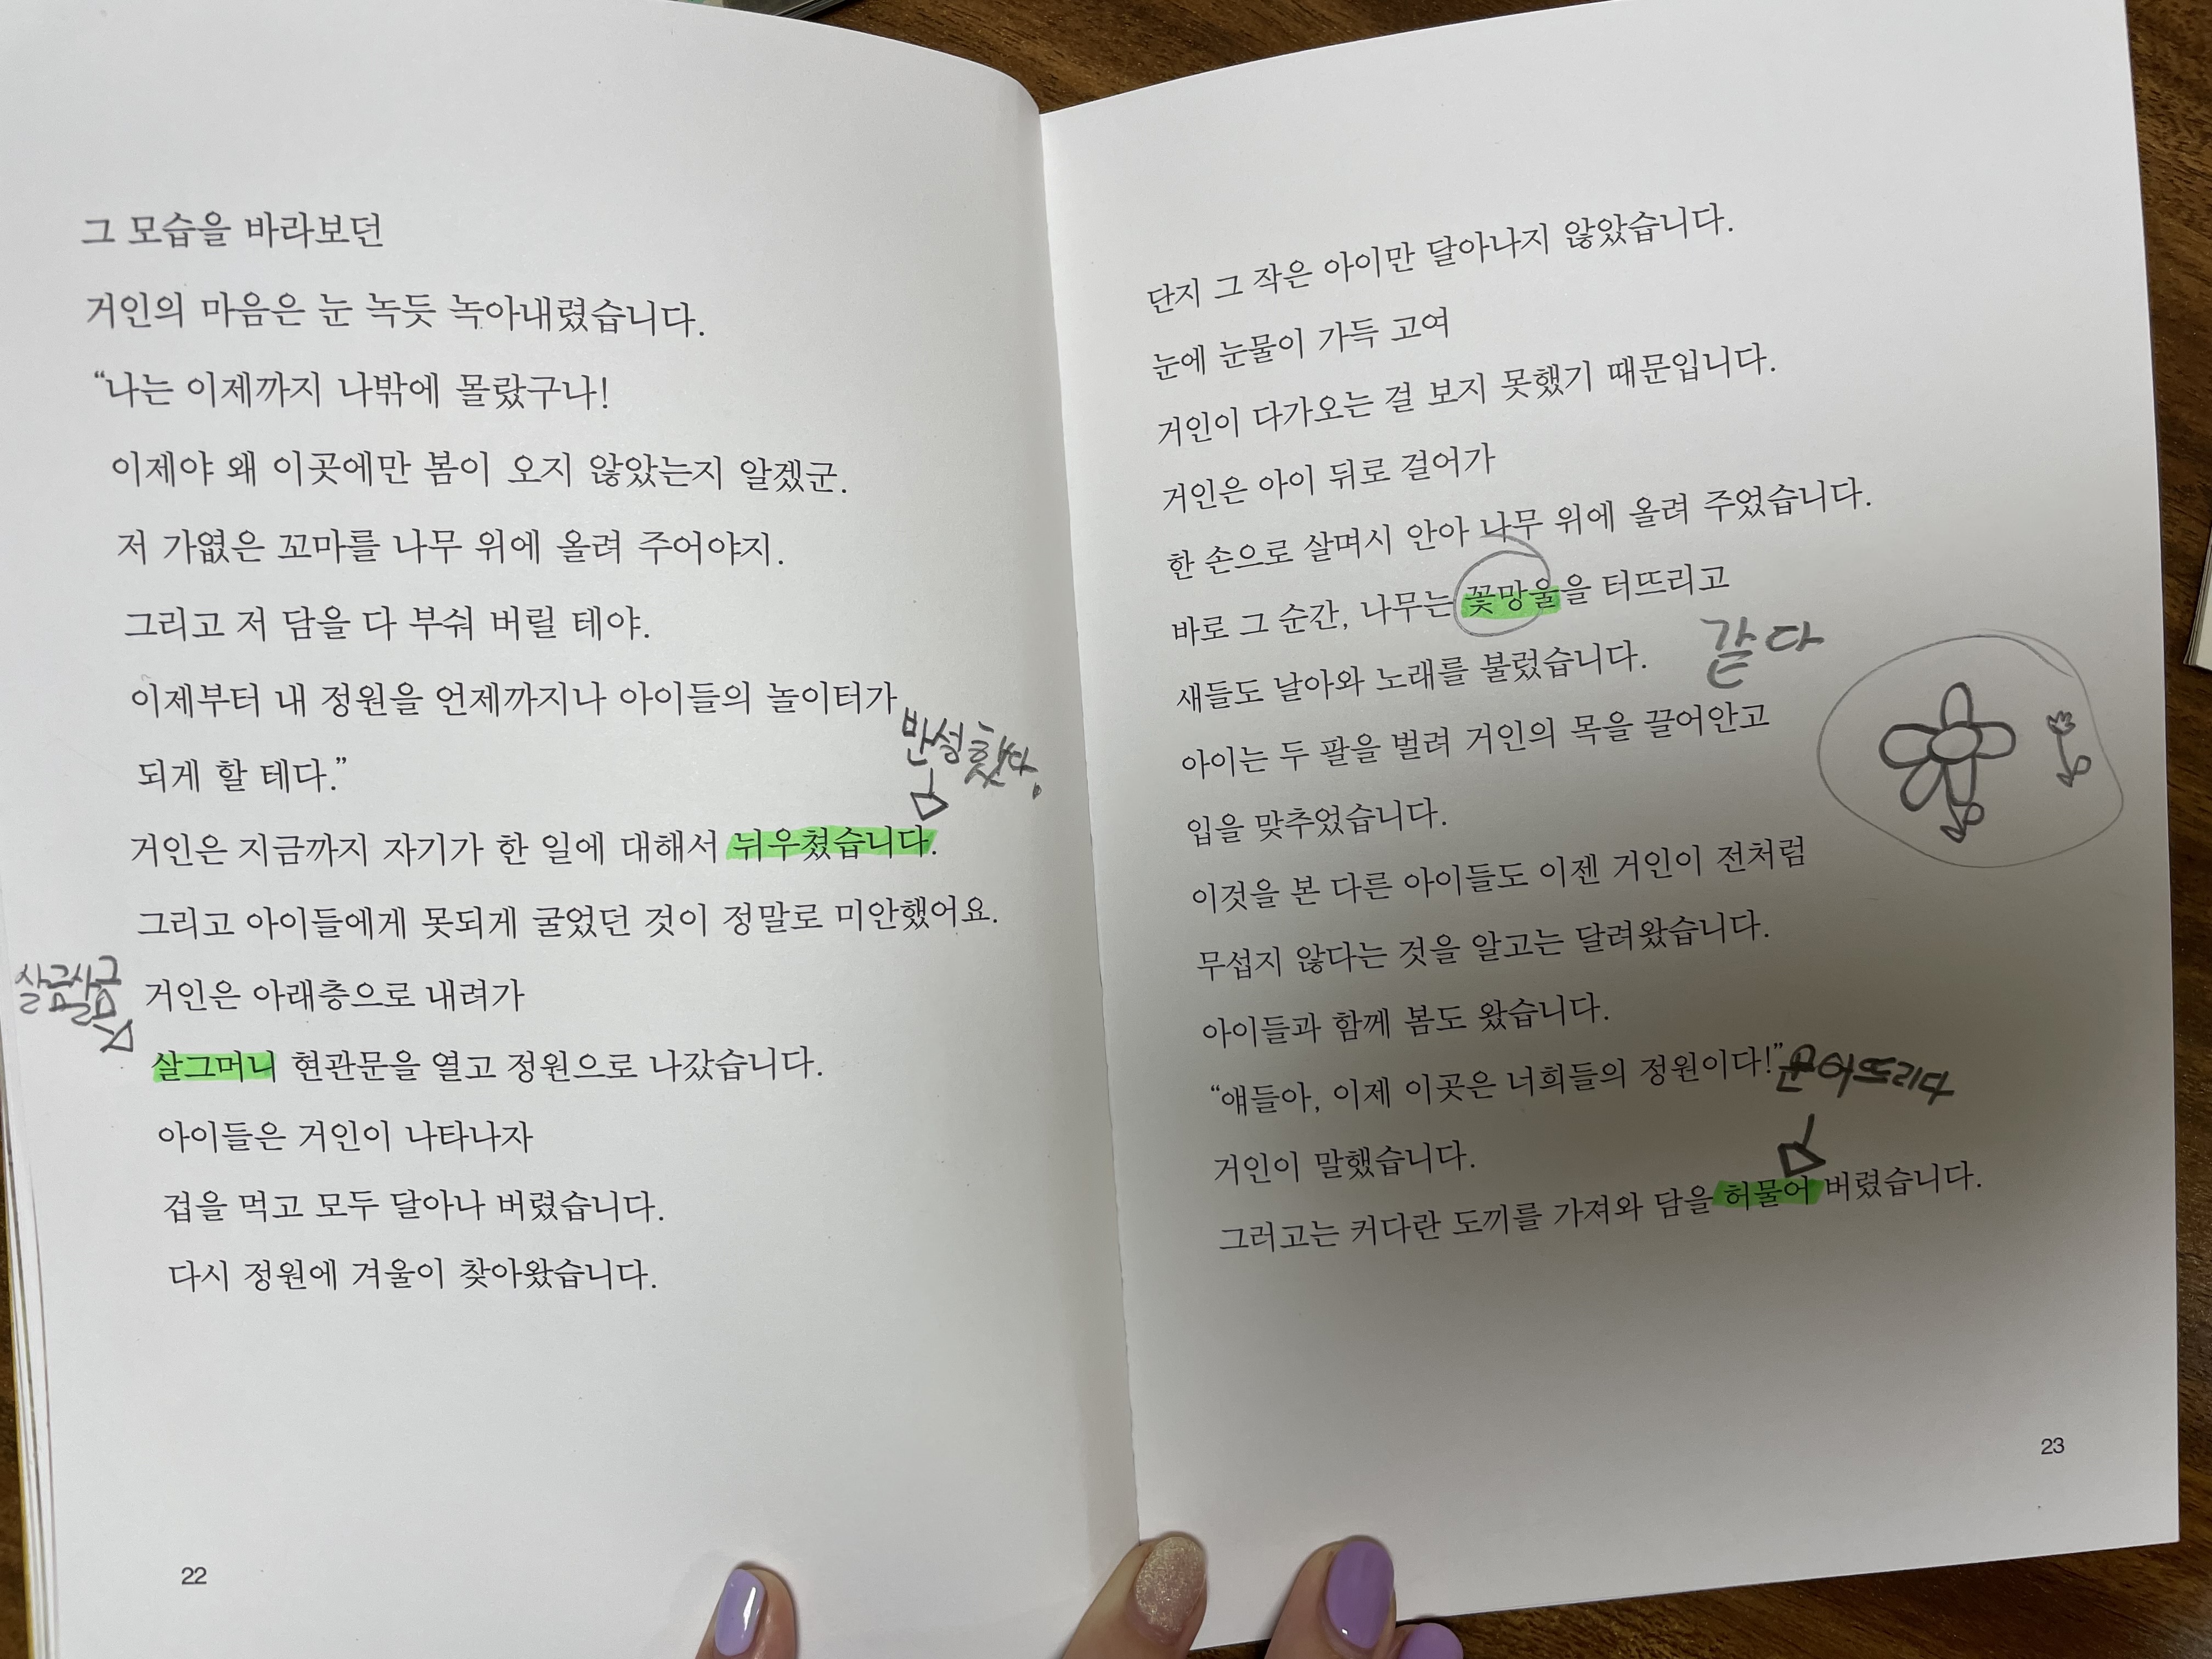 그 모습을 바라보던
거인의 마음은 눈 녹듯 녹아내렸습니다.
“나는 이제까지 나밖에 몰랐구나!
이제야 왜 이곳에만 봄이 오지 않았는지 알겠군.
저 가엾은 꼬마를 나무 위에 올려 주어야지.
그리고 저 담을 다 부숴 버릴 테야.
이제부터 내 정원을 언제까지나 아이들의 놀이터가
되게 할 테다.”
반성했다.
거인은 지금까지 자기가 한 일에 대해서 뉘우쳤습니다.
그리고 아이들에게 못되게 굴었던 것이 정말로 미안했어요.
살금살금
거인은 아래층으로 내려가
살그머니 현관문을 열고 정원으로 나갔습니다.
아이들은 거인이 나타나자
겁을 먹고 모두 달아나 버렸습니다.
다시 정원에 겨울이 찾아왔습니다.
22
단지 그 작은 아이만 달아나지 않았습니다.
눈에 눈물이 가득 고여
거인이 다가오는 걸 보지 못했기 때문입니다.
거인은 아이 뒤로 걸어가
한 손으로 살며시 안아 나무 위에 올려 주었습니다.
바로 그 순간, 나무는 꽃망울을 터뜨리고
같다
새들도 날아와 노래를 불렀습니다.
아이는 두 팔을 벌려 거인의 목을 끌어안고
입을 맞추었습니다.
이것을 본 다른 아이들도 이젠 거인이 전처럼
무섭지 않다는 것을 알고는 달려왔습니다.
아이들과 함께 봄도 왔습니다.
“얘들아, 이제 이곳은 너희들의 정원이다!”
거인이 말했습니다.
그러고는 커다란 도끼를 가져와 담을 허물어 버렸습니다.
23